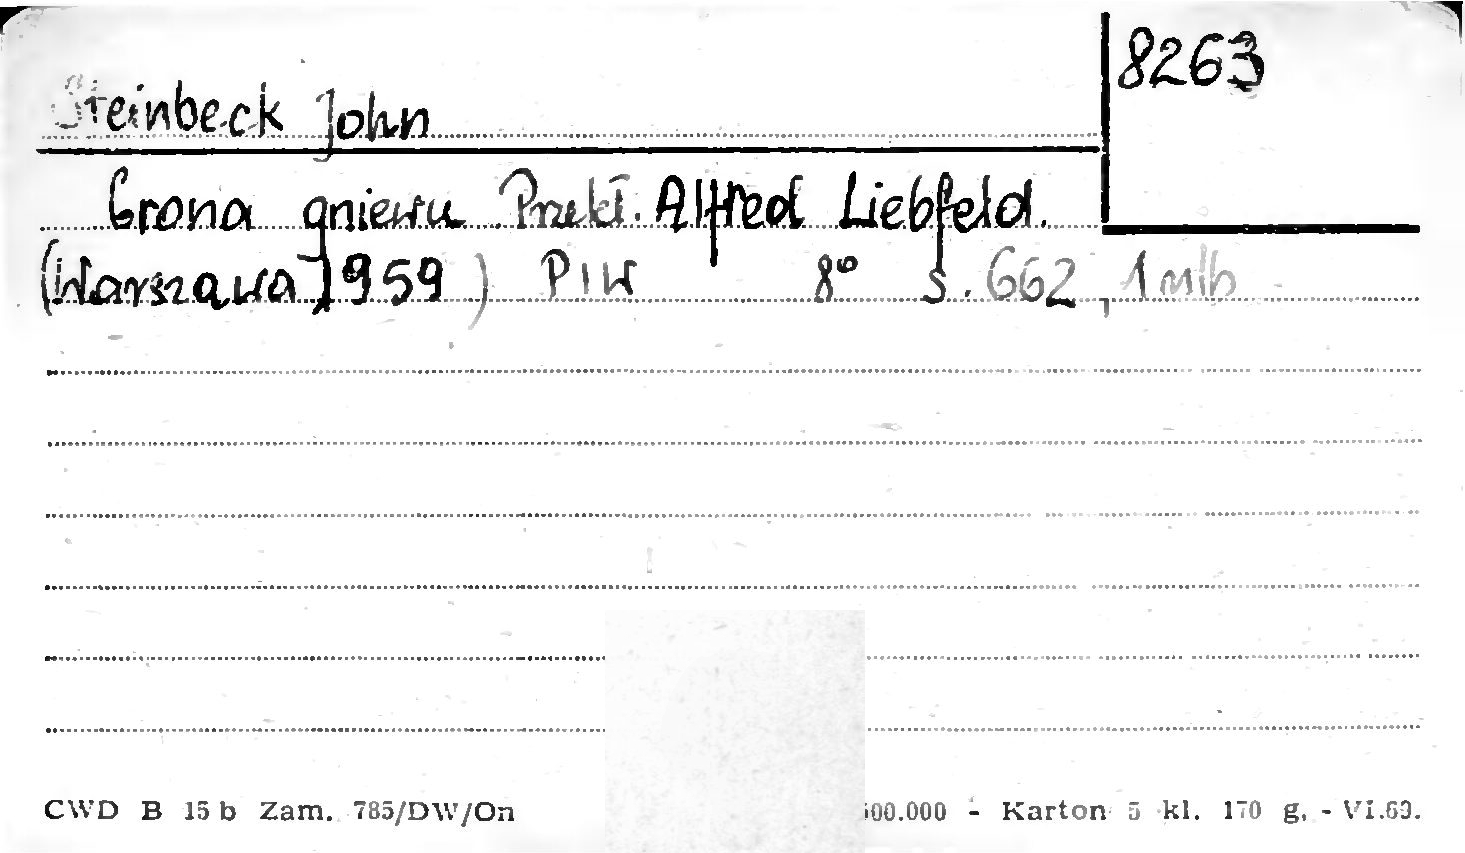 8263
Steinbeck John
Grona gniewu Przekł. Alfred Liebfeld.
(Warszawa 1959) PIW 8° s. 662, 1 nlb
CWD B 15 b Zam. 785/DW/On 500.000 - Karton 5 kl. 170 g. - VI.63.